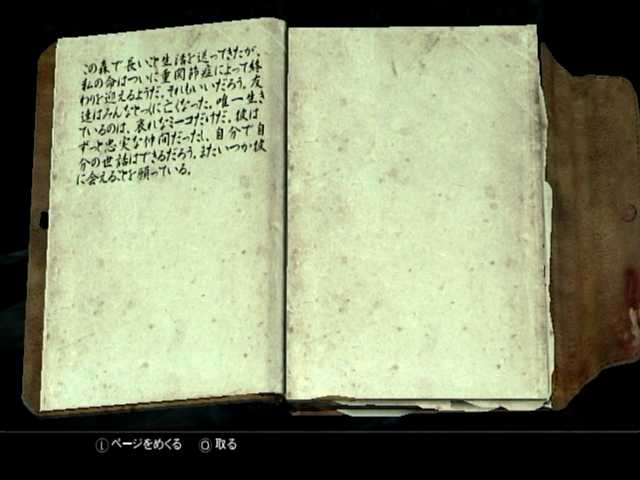 この森で長いこと生活を送ってきたが、
私の命はついに重関節症によって終
わりを迎えるようだ。それもいいだろう。友
達はみんなとっくに亡くなった。唯一生き
ているのは、哀れなミーコだけだ。彼は
ずっと忠実な仲間だったし、自分で自
分の世話はできるだろう。またいつか彼
に会えることを願っている。
L ページをめくる O 取る